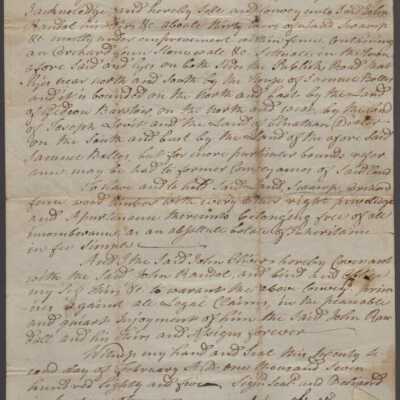 acknowledge and hereby Sell and Convey unto Said John
Randal his heirs &c about thirty acres of Land Swamp
& mostly under improvement within fence Containing
an Orchard your Stone walls &c Situate in the Town
afore Said and lyes on both Side the Publick Road that
lyes near north and South by the House of Samuel Bates
and it is bounded on the North and East by the Land
of Gideon Barstow on the North and West by the Land
of Joseph Lewis and the Land of Jonathan
on the South and East by the Land of the afore Said
Samuel Bates, but for more particular bounds refer
ance may be had to former Conveyances of Said Land
To have and to hold Said Land Swamp orchard
fence wood timber with every other right priviledge
and Apurtenance thereunto belonging free of all
incumbrance as an absolute Estate of Inheritance
in fee Simple
And I the Said John hereby Covenant
with the Said John Randal and bind and oblige
my Self Heirs &c to warrant the above Convey'd premi
ses against all Legal Claims, in the peaceable
and quiet Injoyment of him the Said John Ran
dall and his Heirs and Assigns forever
Witness my hand and Seal this twenty Se
cond day of February A.D. one thousand Seven
hundred Eighty and five Sign'd Seal'd and Delivered